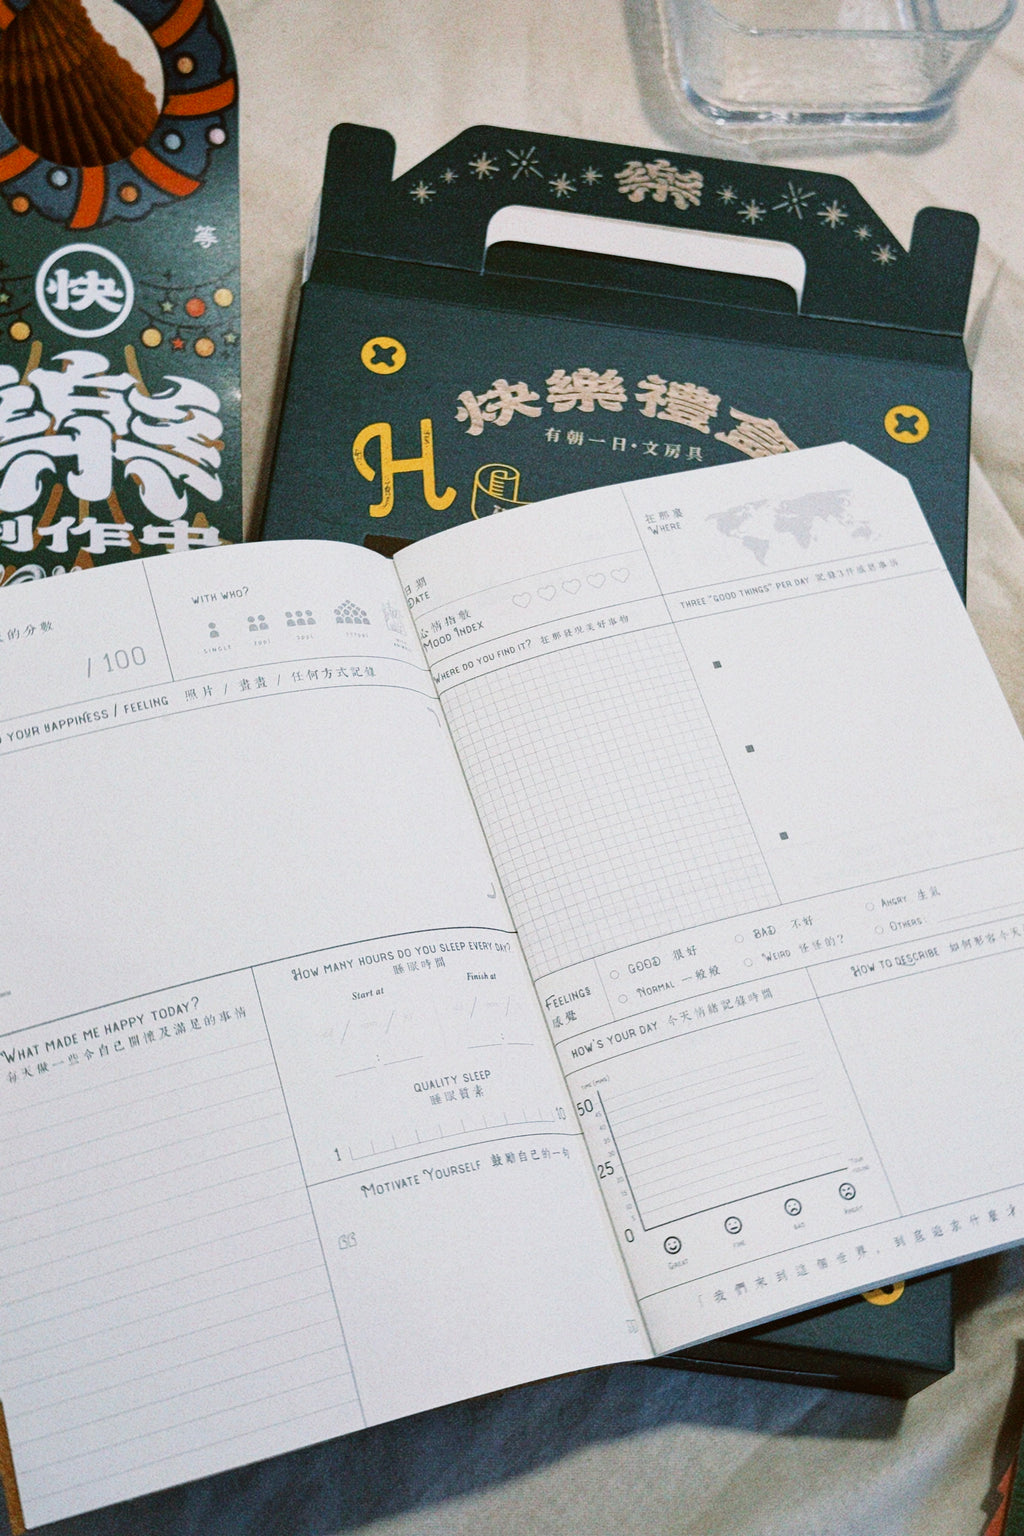 樂
等
快
樂
制作中
快樂禮盒
有朝一日•文房具
H
的分數
/100
WITH WHO?
SINGLE
YOUR HAPPINESS / FEELING 照片 / 畫畫 / 任何方式記錄
WHAT MADE ME HAPPY TODAY?
每天做一些令自己開懷及滿足的事情
HOW MANY HOURS DO YOU SLEEP EVERY DAY?
睡眠時間
Start at
Finish at
QUALITY SLEEP
睡眠質素
1
10
MOTIVATE YOURSELF 鼓勵自己的一句
日期
DATE
在那裏
WHERE
心情指數
MOOD INDEX
WHERE DO YOU FIND IT? 在那發現美好事物
THREE "GOOD THINGS" PER DAY 記錄3件感恩事訴
FEELINGS
感覺
GOOD 很好
BAD 不好
ANGRY 生氣
NORMAL 一般般
WEIRD 怪怪的?
OTHERS:
HOW'S YOUR DAY 今天情緒記錄時間
HOW TO DESCRIBE 如何形容今天
TIME (MINS)
50
25
0
YOUR FEELING
GREAT
FINE
BAD
ANGRY
「我們來到這個世界，到底追求什麼才